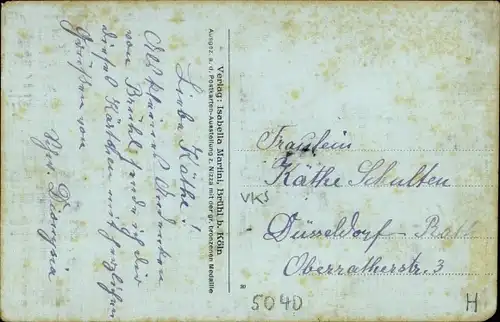 Liebe Käthe!
Als kleines Andenken
von Brühl sende ich dir
dieses Kärtchen mit herzlichen
Grüßen von
Dionysia
Verlag: Isabella Martini, Brühl b. Köln
Ausgez. a. d. Postkarten-Ausstellung z. Nizza mit der gr. bronzenen Medaille
Fräulein
Käthe Schulten
Düsseldorf-Rath
Oberratherstr. 3
VKS
5040
H